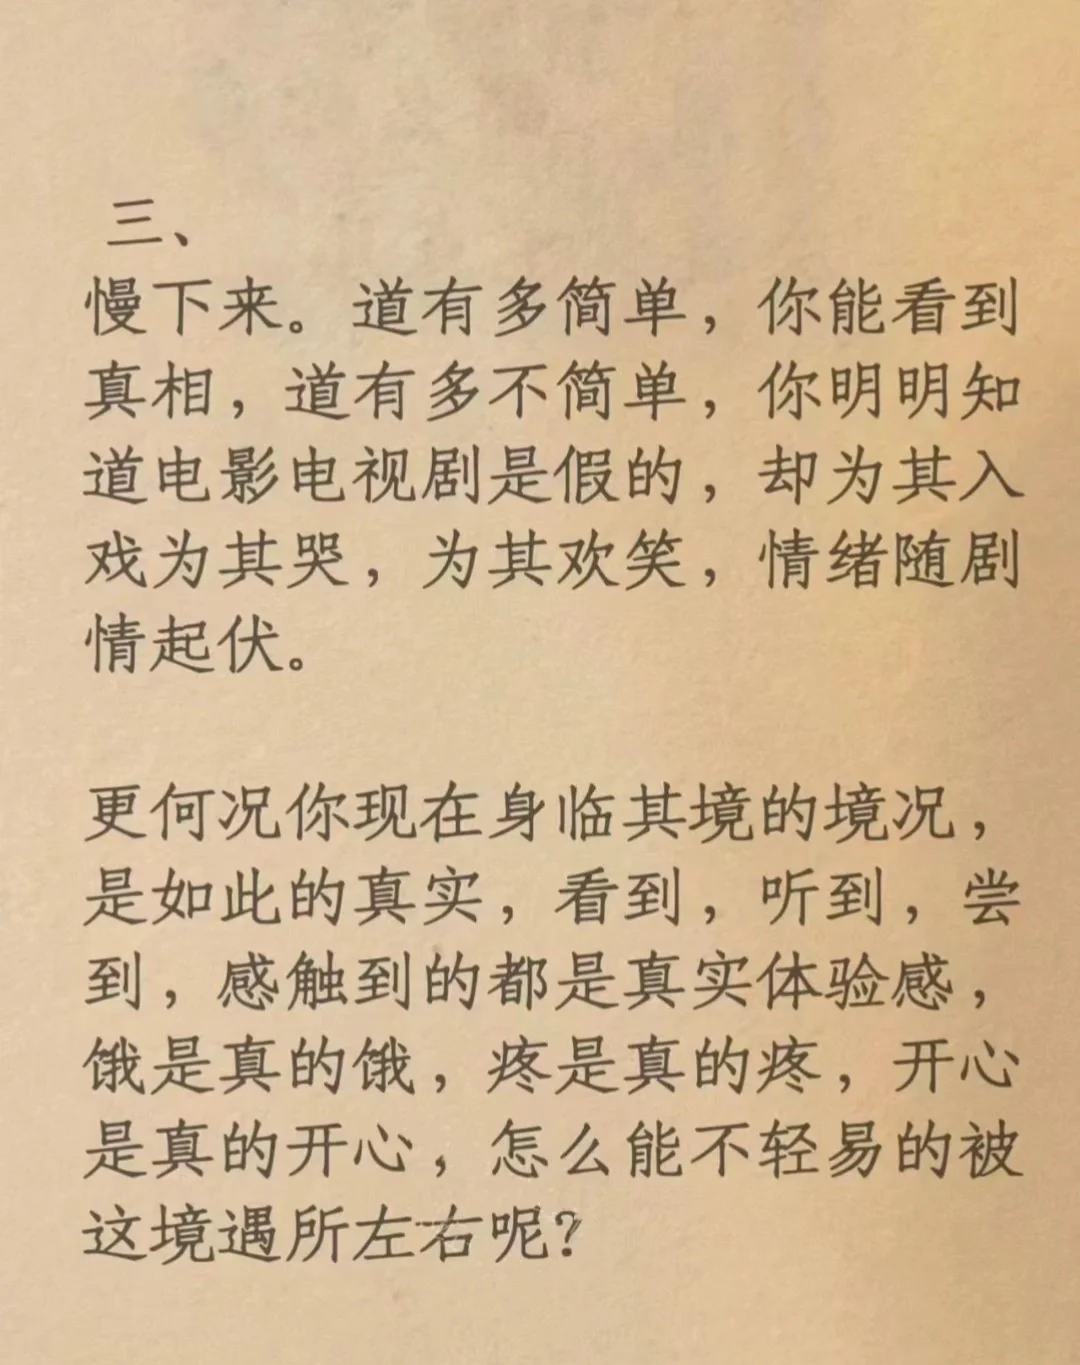 三、
慢下来。道有多简单，你能看到
真相，道有多不简单，你明明知
道电影电视剧是假的，却为其入
戏为其哭，为其欢笑，情绪随剧
情起伏。
更何况你现在身临其境的境况，
是如此的真实，看到，听到，尝
到，感触到的都是真实体验感，
饿是真的饿，疼是真的疼，开心
是真的开心，怎么能不轻易的被
这境遇所左右呢？